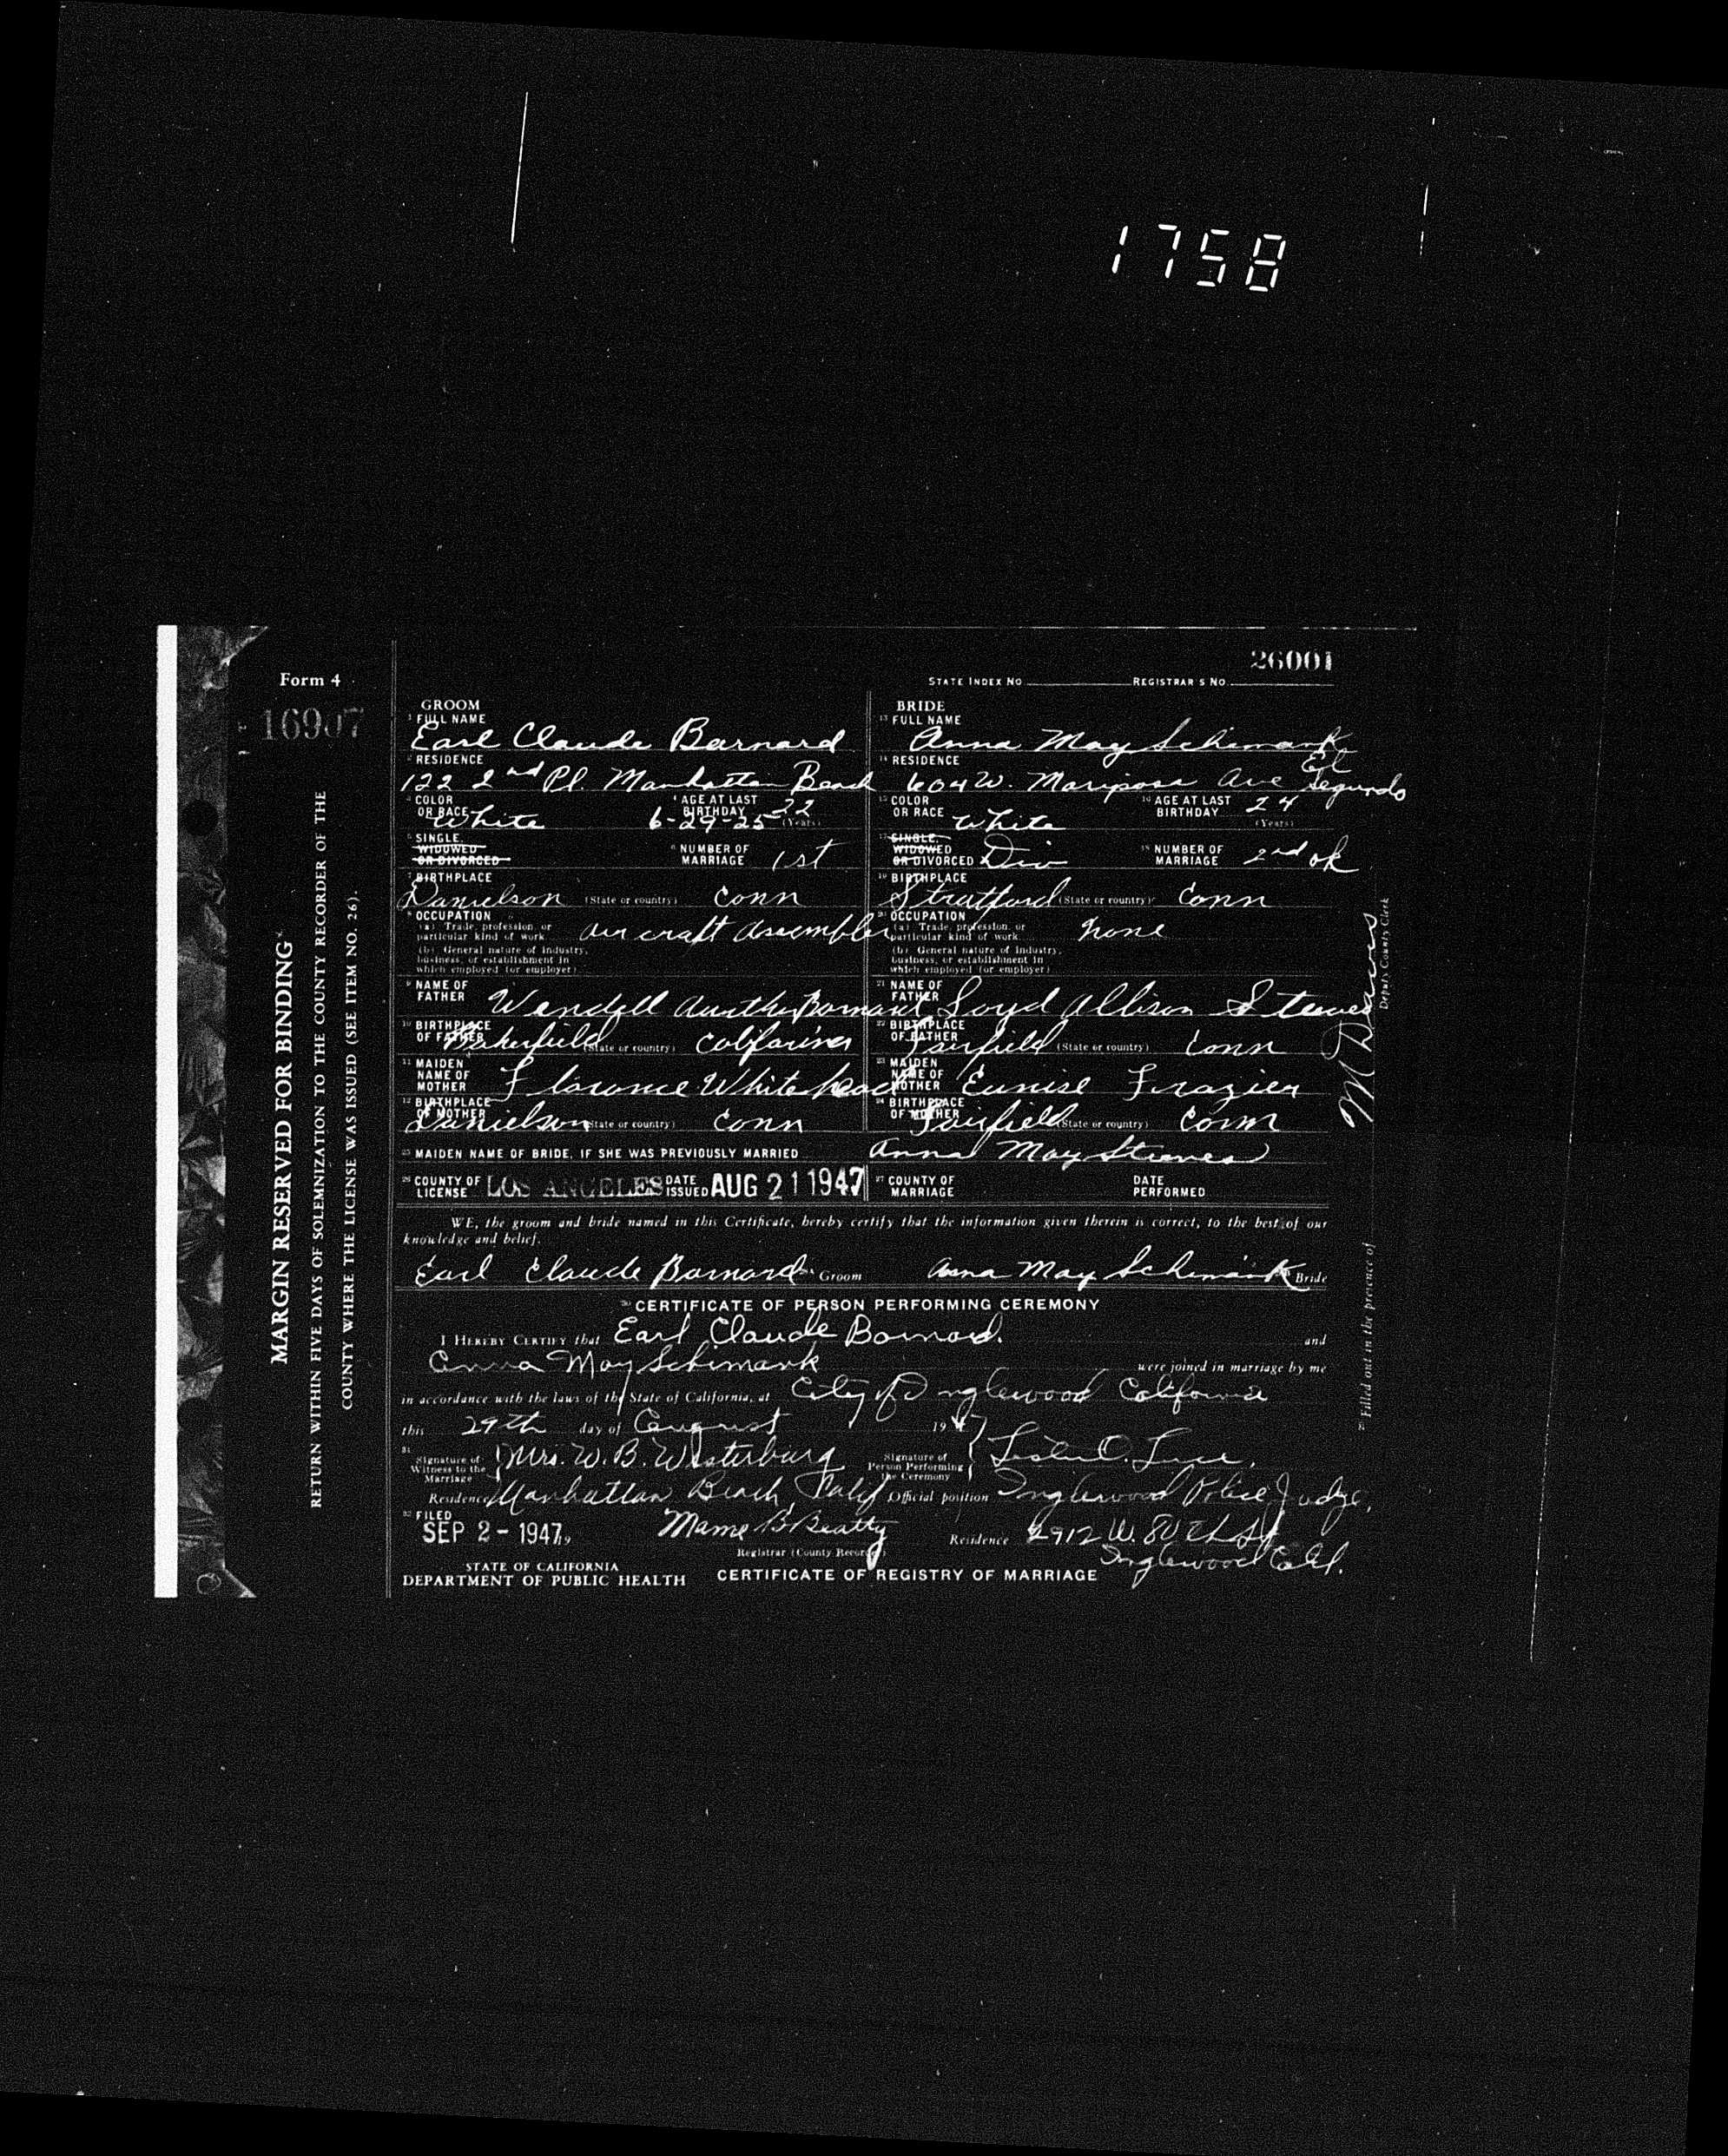 1758
26001
Form 4
STATE INDEX NO. REGISTRAR'S NO.
16907
MARGIN RESERVED FOR BINDING
RETURN WITHIN FIVE DAYS OF SOLEMNIZATION TO THE COUNTY RECORDER OF THE
COUNTY WHERE THE LICENSE WAS ISSUED (SEE ITEM NO. 26).
GROOM
1 FULL NAME
Earl Claude Barnard
2 RESIDENCE
122 2nd Pl. Manhattan Beach
3 COLOR OR RACE White 6-29-25 4 AGE AT LAST BIRTHDAY 22 (Years)
5 SINGLE, WIDOWED OR DIVORCED 6 NUMBER OF MARRIAGE 1st
7 BIRTHPLACE
Danielson (State or country) Conn
8 OCCUPATION
(a) Trade, profession, or particular kind of work air craft assembler
(b) General nature of industry, business, or establishment in which employed (or employer)
9 NAME OF FATHER Wendell Aurther Barnard
10 BIRTHPLACE OF FATHER (State or country) California
11 MAIDEN NAME OF MOTHER Florence Whitehead
12 BIRTHPLACE OF MOTHER Danielson (State or country) Conn
BRIDE
13 FULL NAME
Anna May Schimank
14 RESIDENCE
604 W. Mariposa Ave El Segundo
15 COLOR OR RACE White 16 AGE AT LAST BIRTHDAY 24 (Years)
17 SINGLE, WIDOWED OR DIVORCED Div 18 NUMBER OF MARRIAGE 2nd ok
19 BIRTHPLACE
Stratford (State or country) Conn
20 OCCUPATION
(a) Trade, profession, or particular kind of work none
(b) General nature of industry, business, or establishment in which employed (or employer)
21 NAME OF FATHER Loyd Allison Steeves
22 BIRTHPLACE OF FATHER Fairfield (State or country) Conn
23 MAIDEN NAME OF MOTHER Eunise Frazier
24 BIRTHPLACE OF MOTHER Fairfield (State or country) Conn
25 MAIDEN NAME OF BRIDE, IF SHE WAS PREVIOUSLY MARRIED Anna May Steeves
26 COUNTY OF LICENSE LOS ANGELES DATE ISSUED AUG 21 1947 27 COUNTY OF MARRIAGE DATE PERFORMED
WE, the groom and bride named in this Certificate, hereby certify that the information given therein is correct, to the best of our
knowledge and belief.
Earl Claude Barnard Groom Anna May Schimank Bride
30 CERTIFICATE OF PERSON PERFORMING CEREMONY
I HEREBY CERTIFY that Earl Claude Barnard. and
Anna May Schimank were joined in marriage by me
in accordance with the laws of the State of California, at City of Inglewood California
this 29th day of August 1947
31 Signature of Witness to the Marriage Mrs. W. B. Westerburg Signature of Person Performing the Ceremony
Residence Manhattan Beach, Calif Official position Inglewood Police Judge,
32 FILED
SEP 2 - 1947 19 Mame B Beatty Residence 2912 W. 80th St
Registrar (County Recorder) Inglewood Calif.
STATE OF CALIFORNIA
DEPARTMENT OF PUBLIC HEALTH CERTIFICATE OF REGISTRY OF MARRIAGE
29 Filled out in the presence of Deputy County Clerk